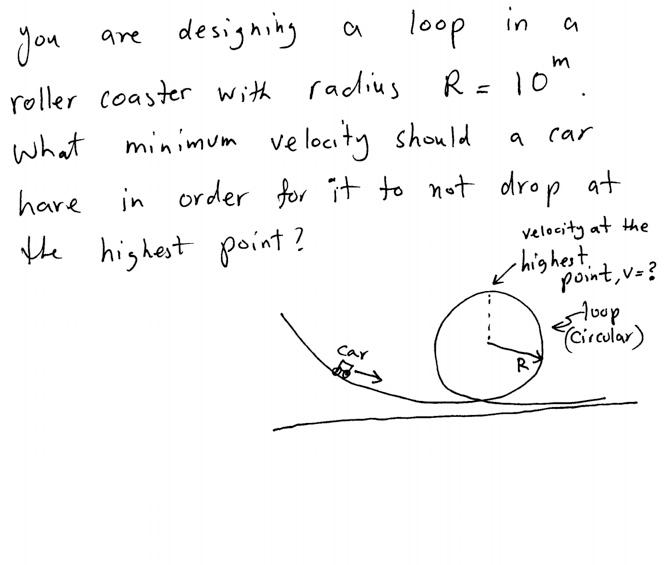 you are designing a loop in a
roller coaster with radius R = 10 m.
What minimum velocity should a car
have in order for it to not drop at
the highest point?
velocity at the
highest
point, v=?
loop
(circular)
car
R